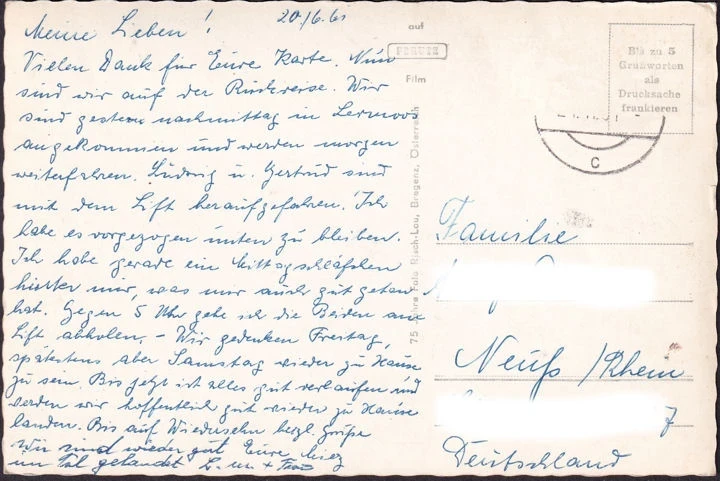 Meine Lieben! 20./6.61
Vielen Dank für Eure Karte. Nun
sind wir auf der Rückreise. Wir
sind gestern nachmittag in Lermoos
angekommen und werden morgen
weiterfahren. Ludwig u. Gertrud sind
mit dem Lift heraufgefahren. Ich
habe es vorgezogen unten zu bleiben.
Ich habe gerade ein Mittagschläfchen
hinter mir, was mir auch gut getan
hat. Gegen 5 Uhr gehe ich die Beiden am
Lift abholen. – Wir gedenken Freitag,
spätestens aber Samstag wieder zu Hause
zu sein. Bis jetzt ist alles gut verlaufen und
werden wir hoffentlich gut wieder zu Hause
landen. Bis auf Wiedersehn herzl. Grüße
Wir sind wieder gut Eure
im Tal gelandet
auf
PERUTZ
Film
75 Jahre Foto Risch-Lau, Bregenz, Österreich
Bis zu 5
Grußworten
als
Drucksache
frankieren
c
Familie
Neuß /Rhein
Deutschland